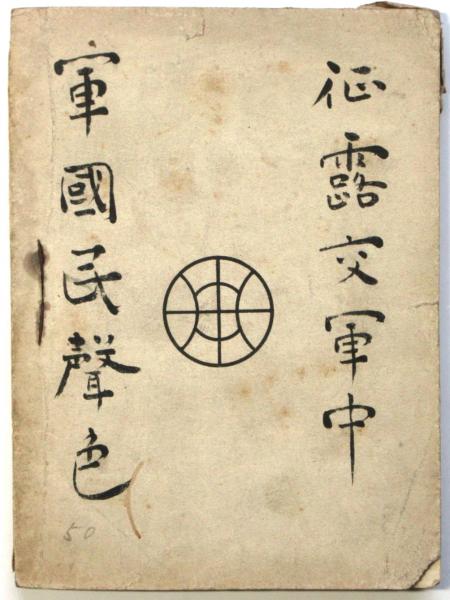 征露交軍中
軍國民聲色
50